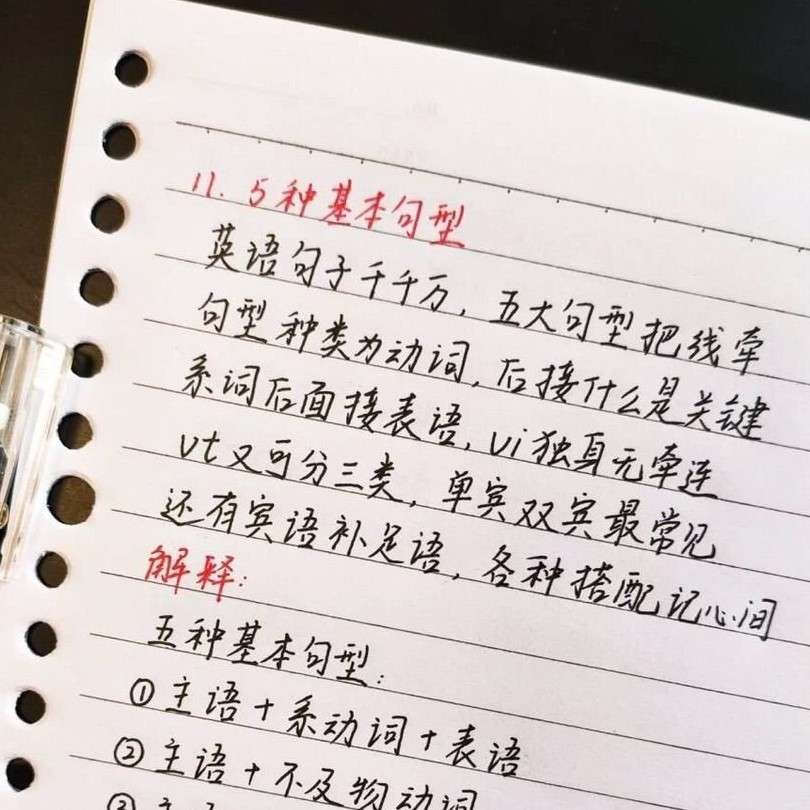 11. 5种基本句型
英语句子千千万,五大句型把线牵
句型种类为动词,后接什么是关键
系词后面接表语,vi独身无牵连
vt又可分三类,单宾双宾最常见
还有宾语补足语,各种搭配记心间
解释:
五种基本句型:
①主语+系动词+表语
②主语+不及物动词